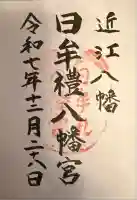 近江八幡
日牟禮八幡宮
令和七年十二月二十八日